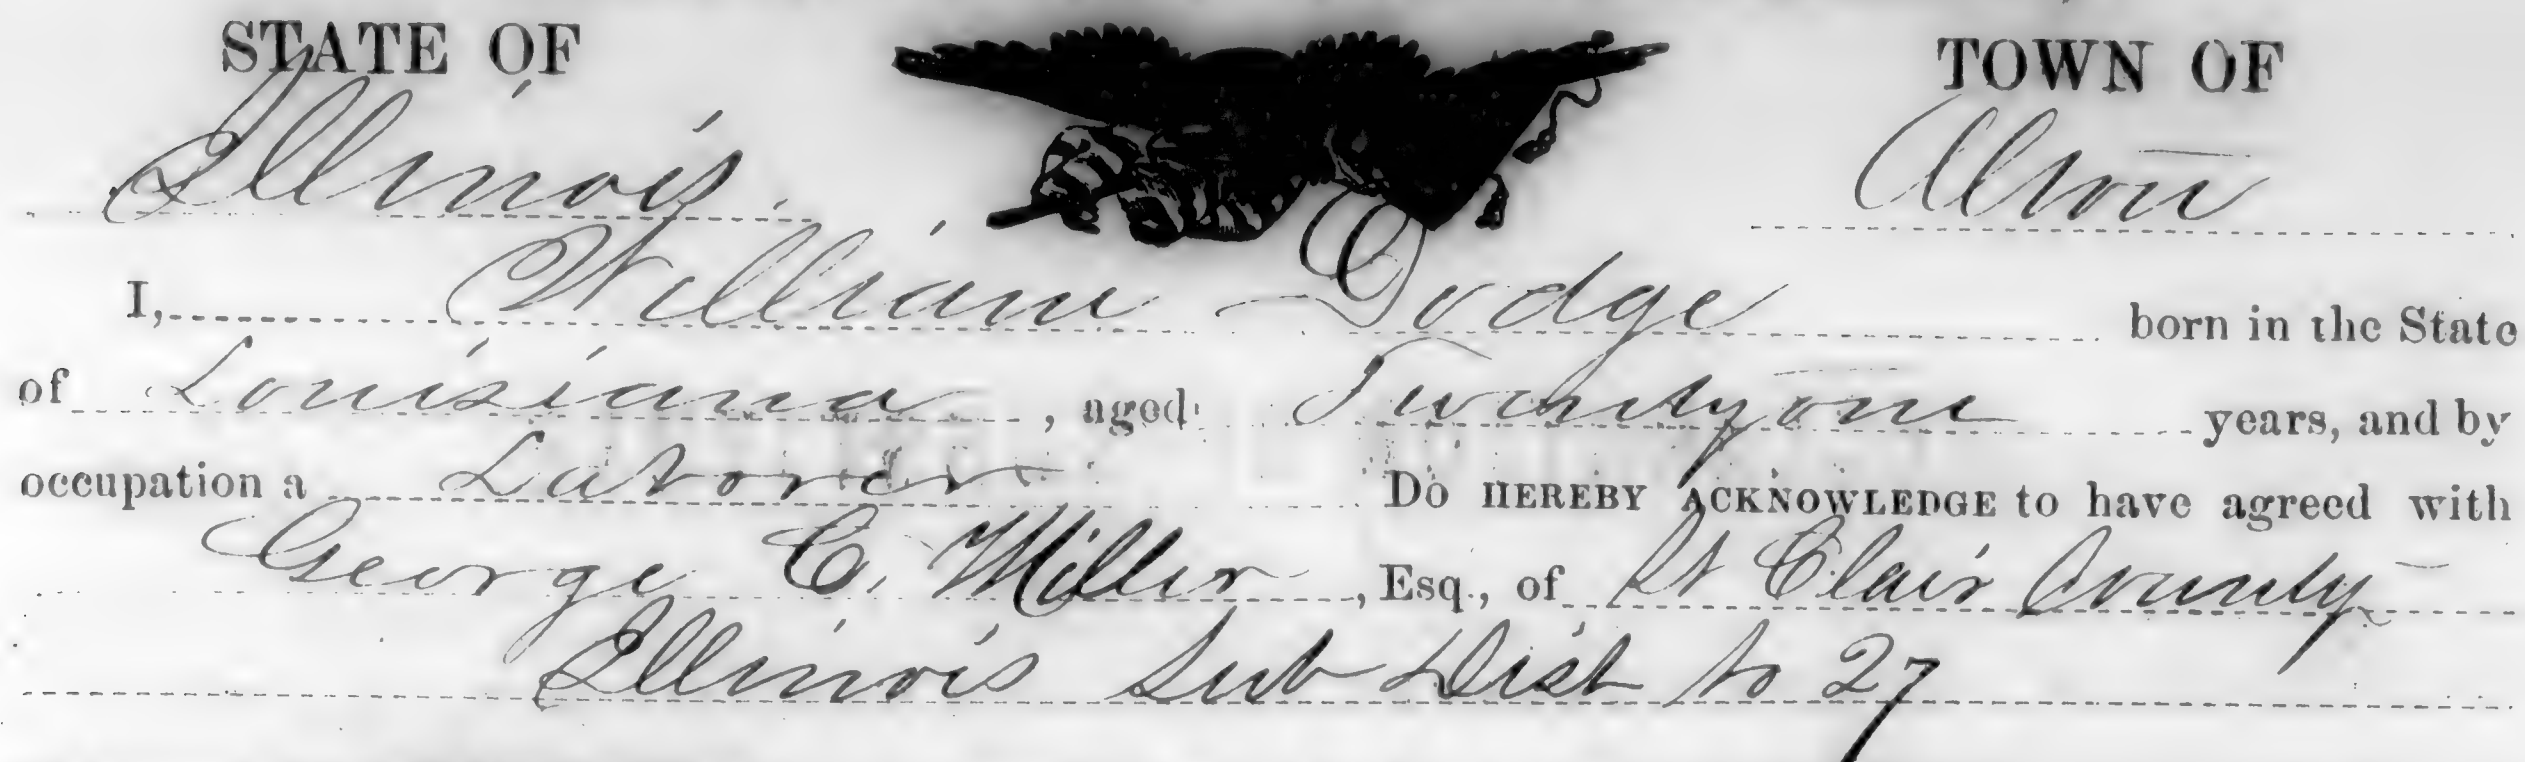 STATE OF TOWN OF
Illinois. Alton
I, William Dodge born in the State
of Louisiana, aged Twenty one years, and by
occupation a Laborer Do HEREBY ACKNOWLEDGE to have agreed with
George C. Miller, Esq., of St Clair County
Illinois Sub Dist No 27